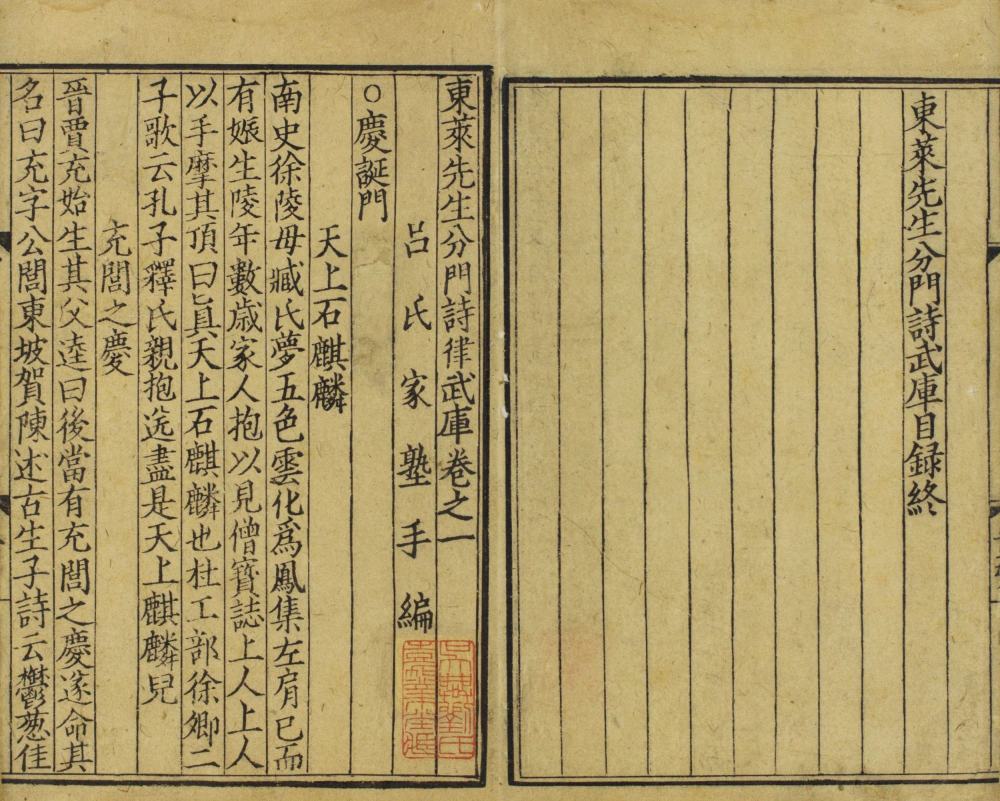 東萊先生分門詩武庫目録終
東萊先生分門詩律武庫卷之一
吕氏家塾手編
○慶誕門
天上石麒麟
南史徐陵母臧氏夢五色雲化爲鳳集左肩已而
有娠生陵年數歳家人抱以見僧寳誌上人上人
以手摩其頂曰真天上石麒麟也杜工部徐卿二
子歌云孔子釋氏親抱送盡是天上麒麟兒
充閭之慶
晉賈充始生其父逵曰後當有充閭之慶遂命其
名曰充字公閭東坡賀陳述古生子詩云鬱葱佳